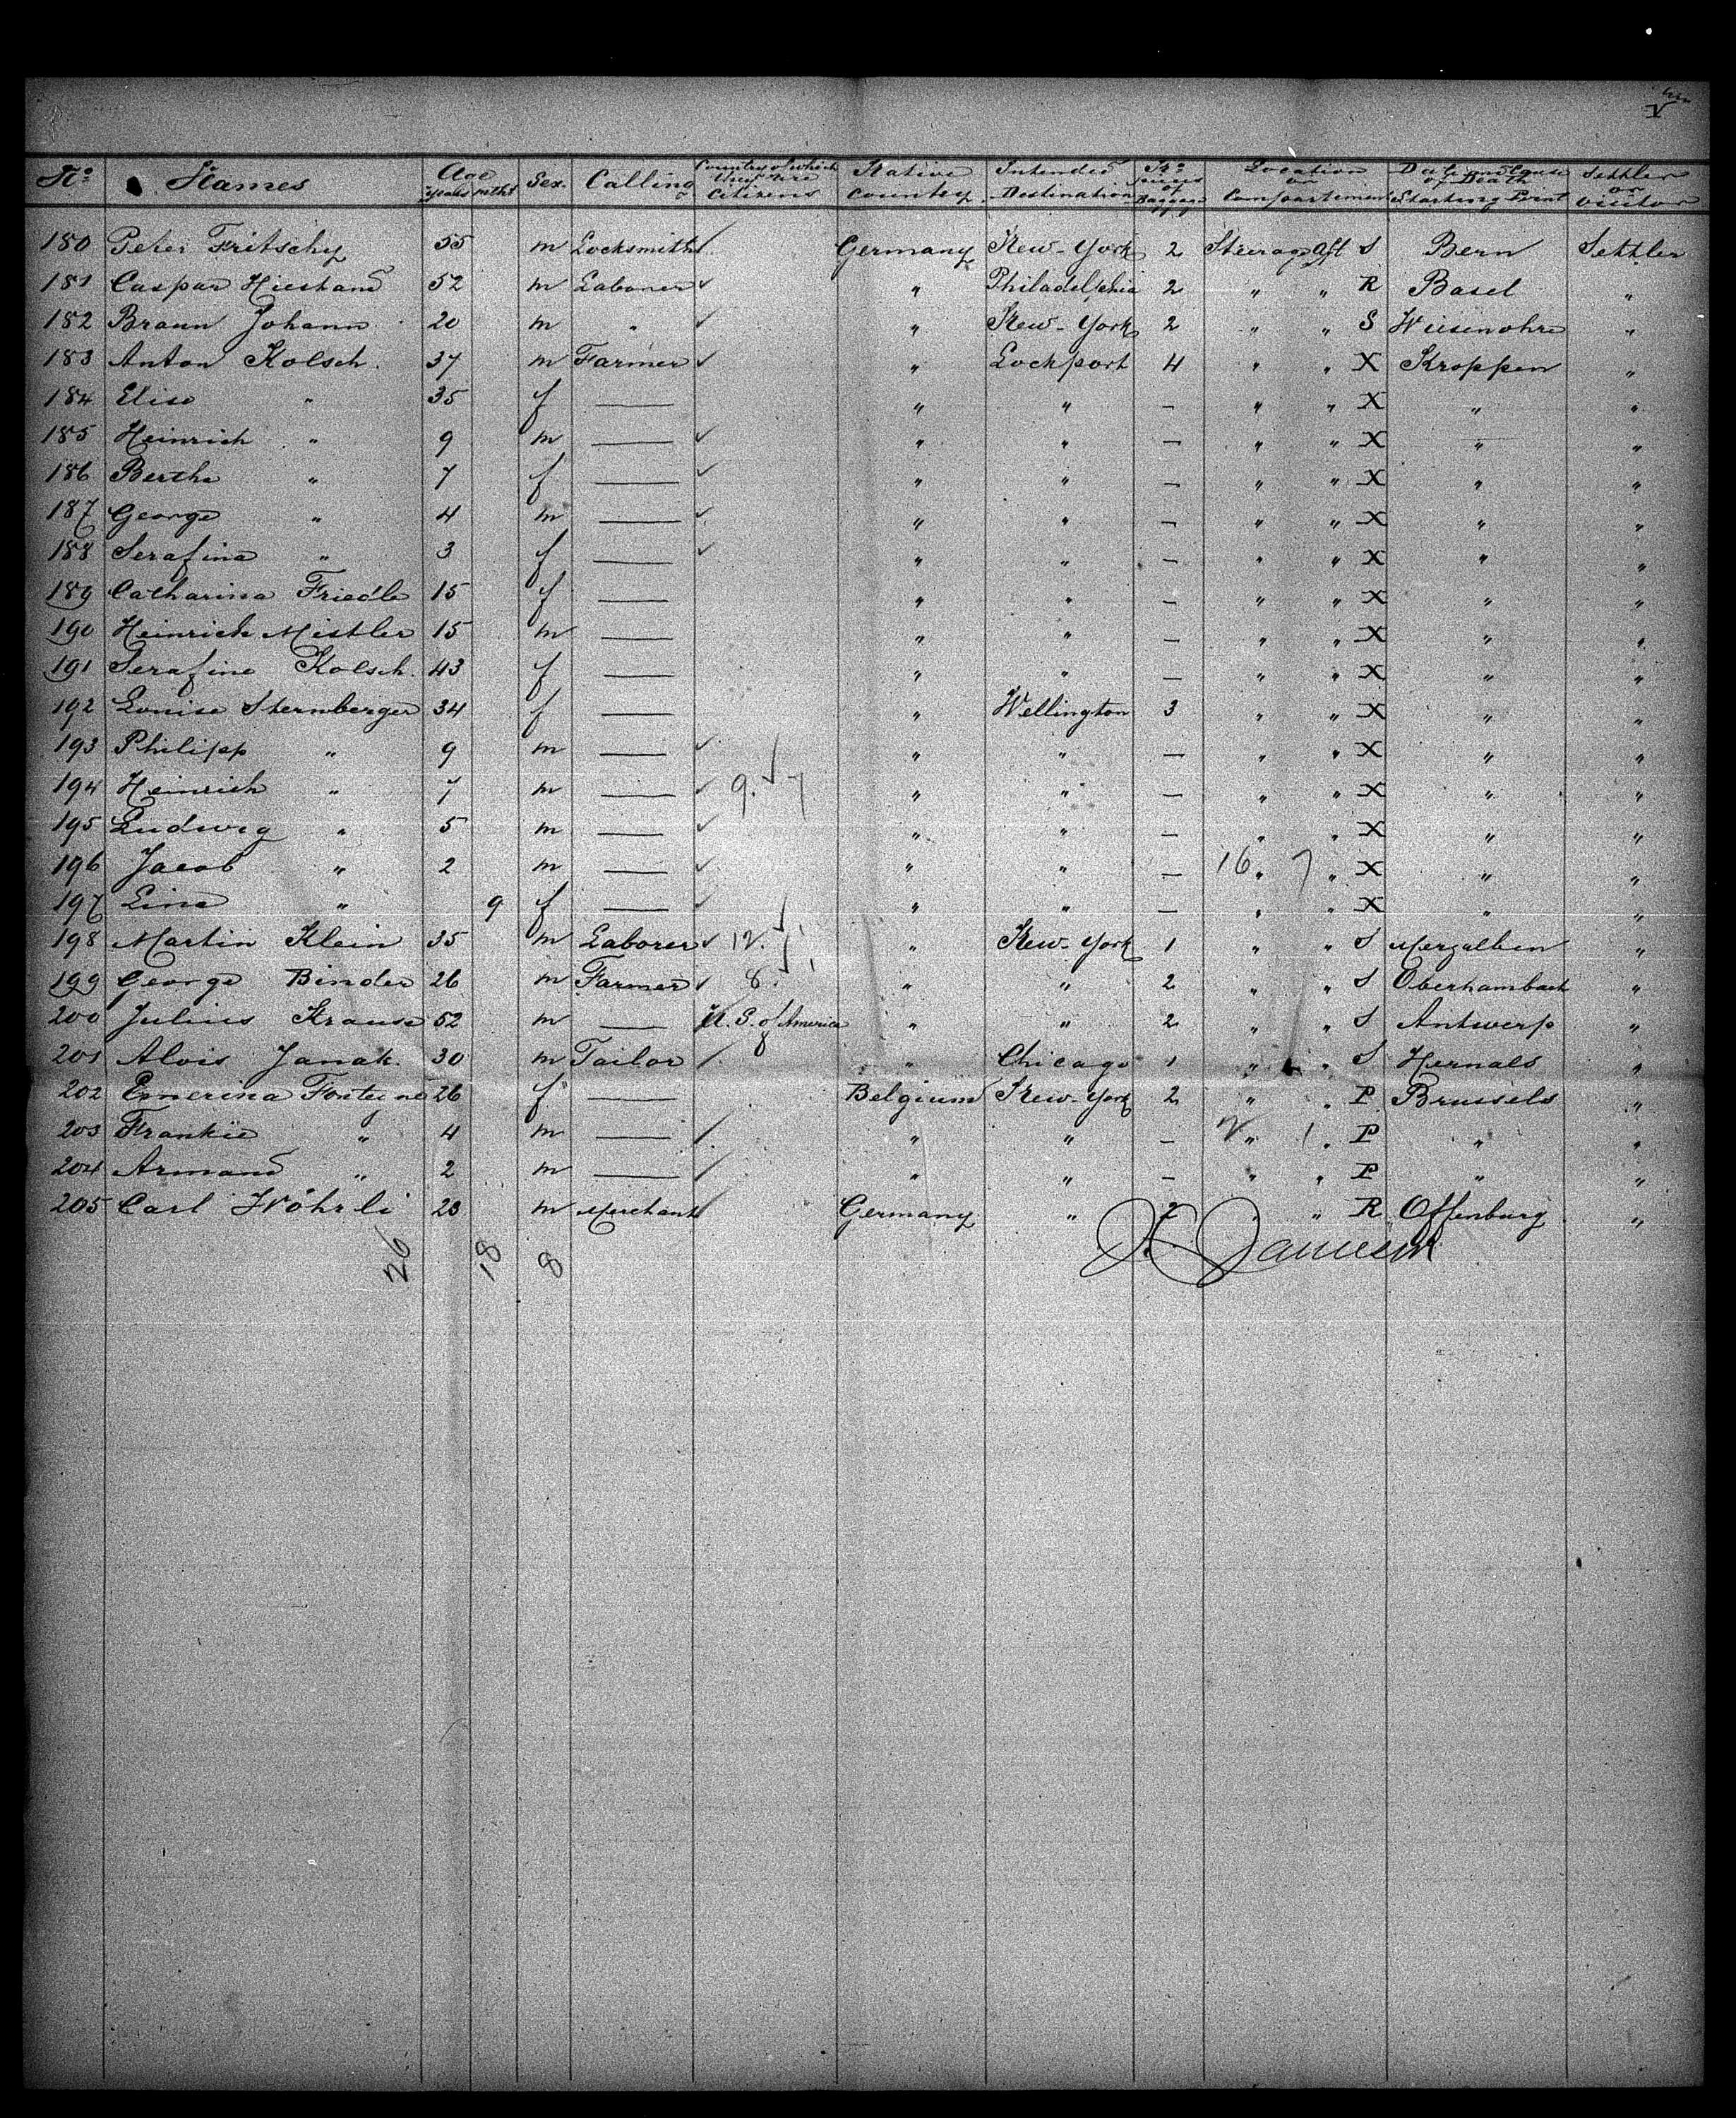 No. Names Age years mths Sex. Calling Country of which they are Citizens Native Country Intended Destination No. Pieces of Baggage Location or Compartement Date and Cause of Death Starting Point Settler or Visitor
180 Peter Fritschy 55 m Locksmith ✓ Germany New-York 2 Steerage Aft S Bern Settler
181 Caspar Hiestand 52 m Laborer ✓ " Philadelphia 2 " " R Basel "
182 Braun Johann 20 m " ✓ " New-York 2 " " S "
183 Anton Kolsch. 37 m Farmer ✓ " Lockport 4 " " X Kroppen "
184 Elise " 35 f — " " — " " X " "
185 Heinrich " 9 m — ✓ " " — " " X " "
186 Bertha " 7 f — ✓ " " — " " X " "
187 George " 4 m — ✓ " " — " " X " "
188 Serafina " 3 f — ✓ " " — " " X " "
189 Catharina Friedle 15 f — " " — " " X " "
190 Heinrich Mistler 15 m — " " — " " X " "
191 Serafine Kolsch. 43 f — " " — " " X " "
192 Louise Sternberger 34 f — " Wellington 3 " " X " "
193 Philipp " 9 m — ✓ " " — " " X " "
194 Heinrich " 7 m — ✓ 9. ✓ 7 " " — " " X " "
195 Ludwig " 5 m — ✓ " " — " " X " "
196 Jacob " 2 m — ✓ " " — 16 " 7 " X " "
197 Lina " 9 f — ✓ " " — " " X " "
198 Martin Klein 35 m Laborer ✓ 12. ✓ " New-York 1 " " S Merzalben "
199 George Binder 26 m Farmer ✓ 8. " " 2 " " S Oberhambach "
200 Julius Krause 52 m — U. S. of America " " 2 " " S Antwerp "
201 Alois Janak. 30 m Tailor ✓ 8 " Chicago 1 " " S Hernals "
202 Emerina Fonteine 26 f — Belgium New-York 2 " " P Brussels "
203 Frankie " 4 m — ✓ " " — 2 " 1 " P " "
204 Armand " 2 m — ✓ " " — " " P " "
205 Carl Wöhrli 23 m Merchant ✓ Germany " 2 " " R Offenburg "
26 18 8